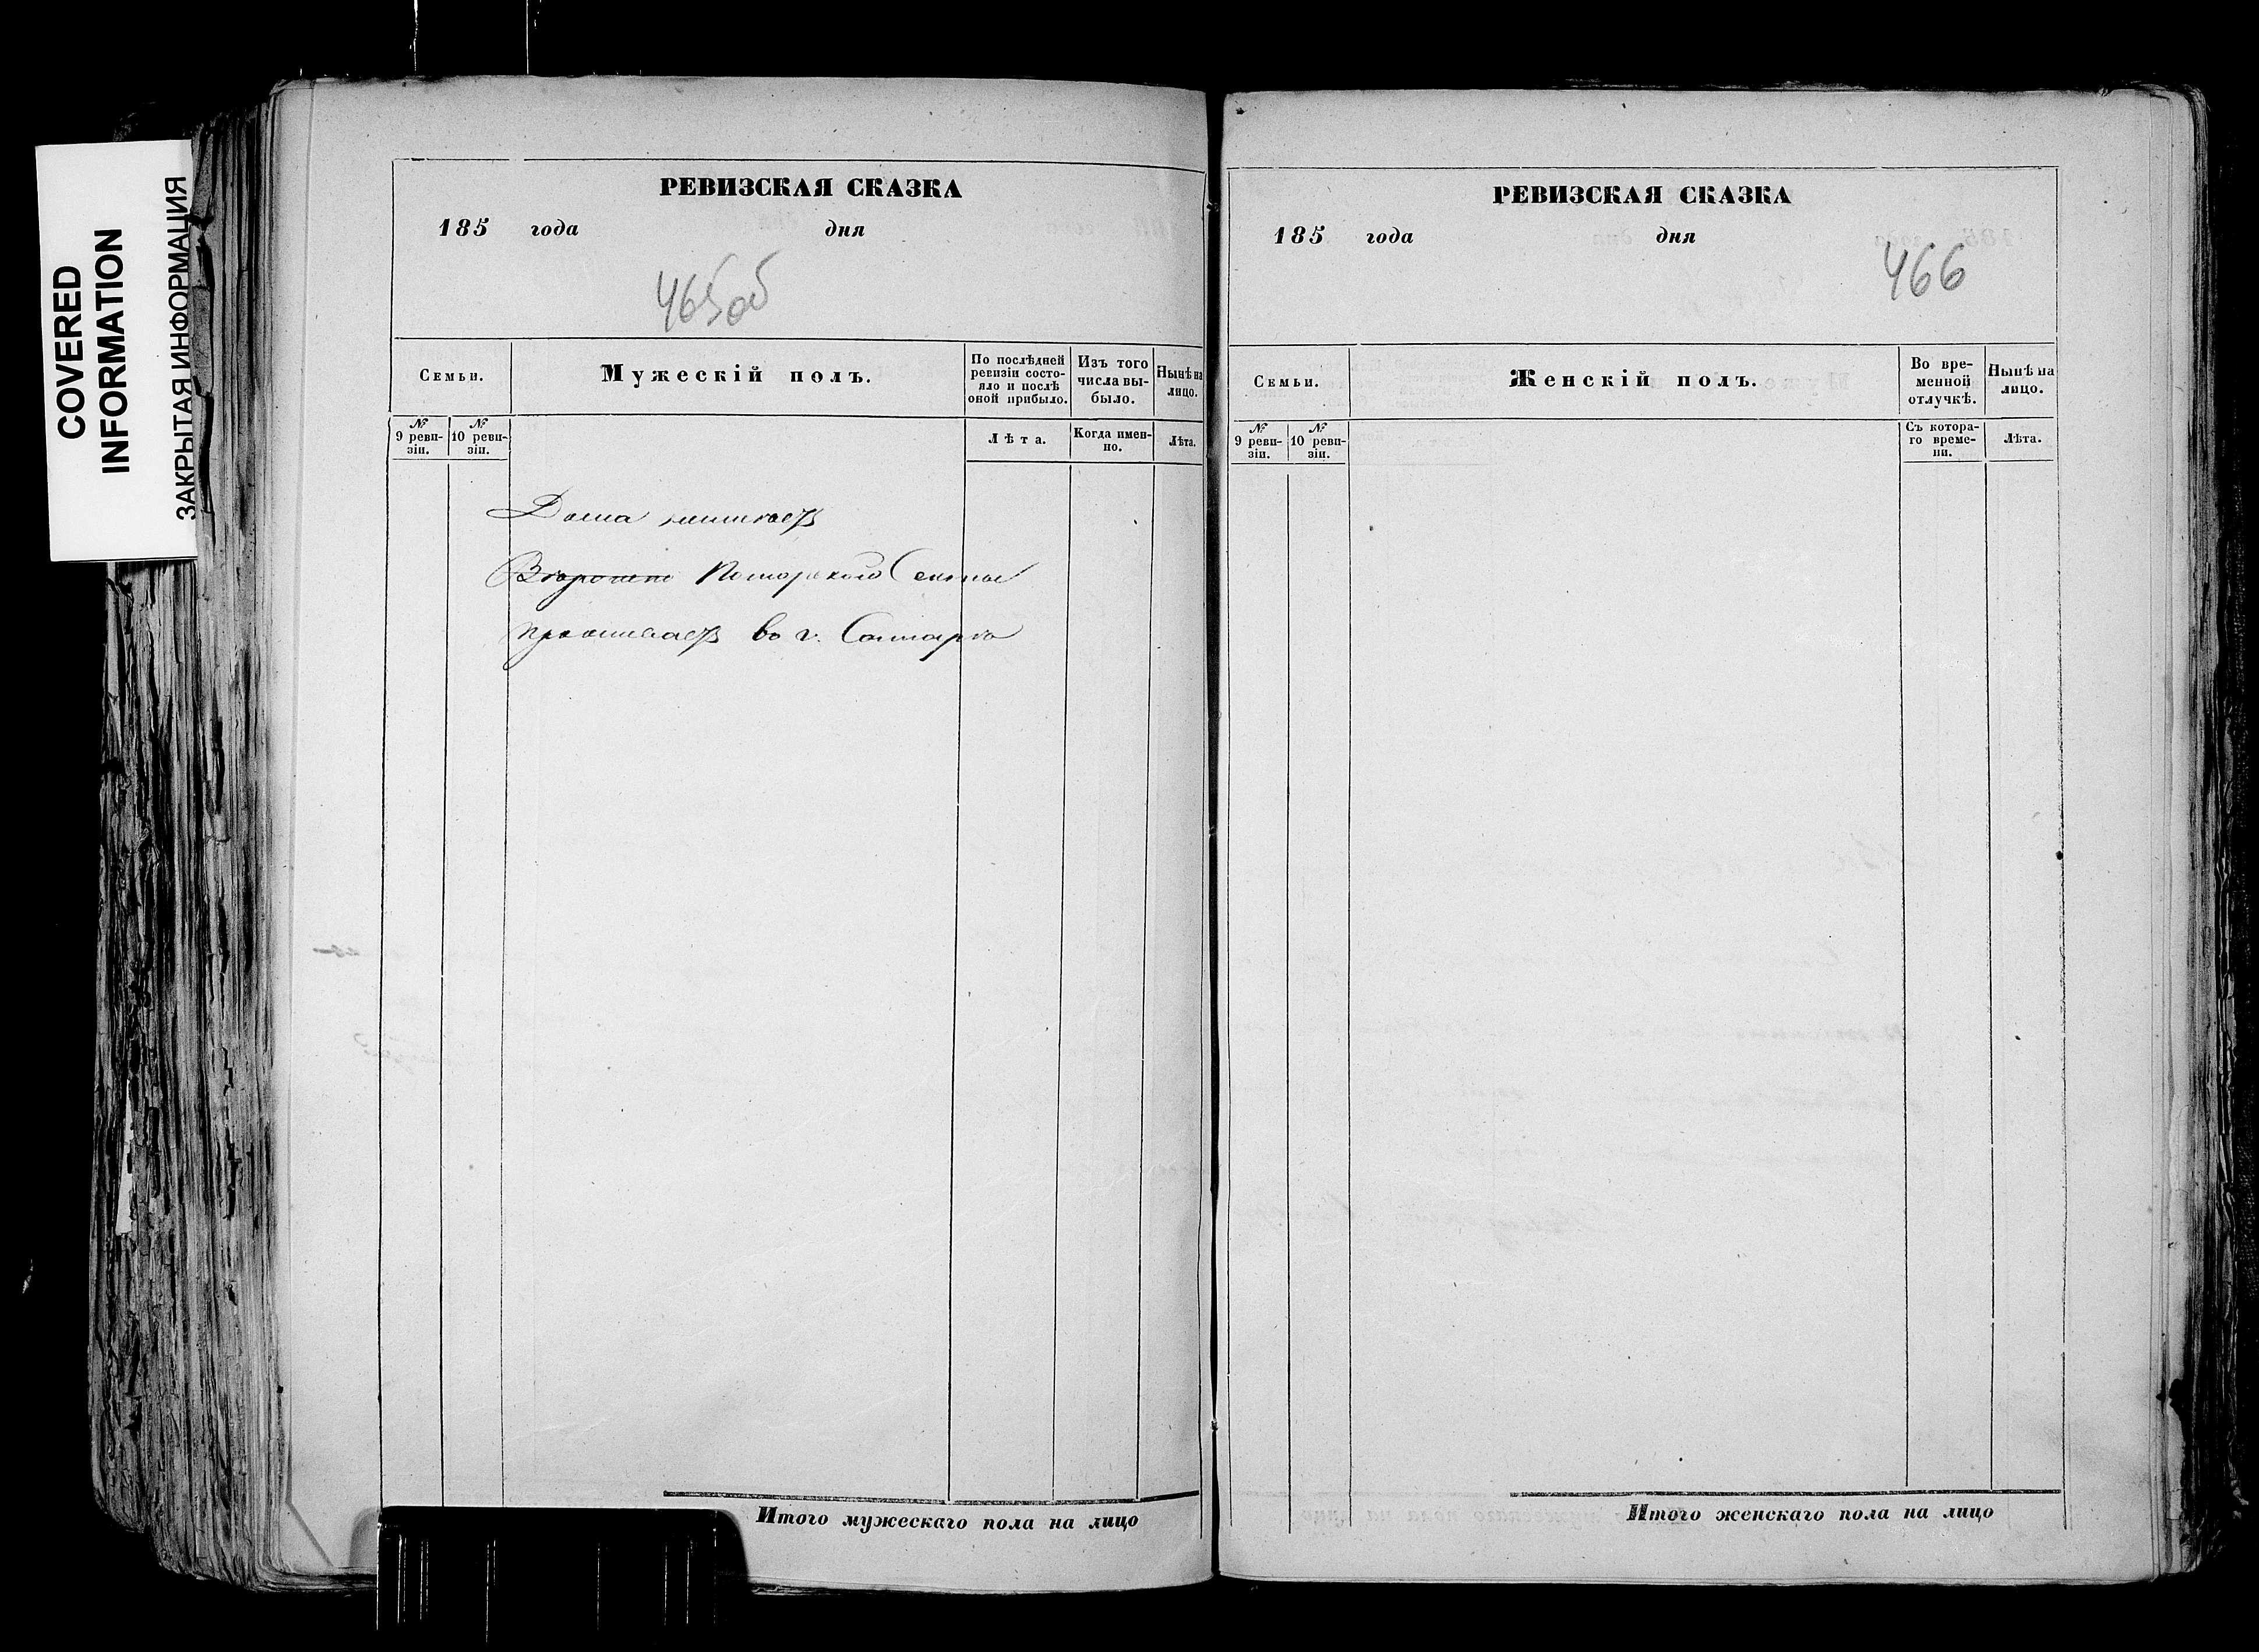 COVERED
INFORMATION
ЗАКРЫТАЯ ИНФОРМАЦИЯ
РЕВИЗСКАЯ СКАЗКА
185 года дня
465об
Семьи.
Мужескій полъ.
По послѣдней
ревизіи состо-
яло и послѣ
оной прибыло.
Изъ того
числа вы-
было.
Нынѣ на
лицо.
№
9 реви-
зіи.
№
10 реви-
зіи.
Лѣта.
Когда имен-
но.
Лѣта.
Дома
Поморского Секты
проживаетъ во г. Самарѣ
Итого мужескаго пола на лицо
РЕВИЗСКАЯ СКАЗКА
185 года дня
466
Семьи.
Женскій полъ.
Во вре-
менной
отлучкѣ.
Нынѣ на
лицо.
№
9 реви-
зіи.
№
10 реви-
зіи.
Съ котора-
го време-
ни.
Лѣта.
Итого женскаго пола на лицо